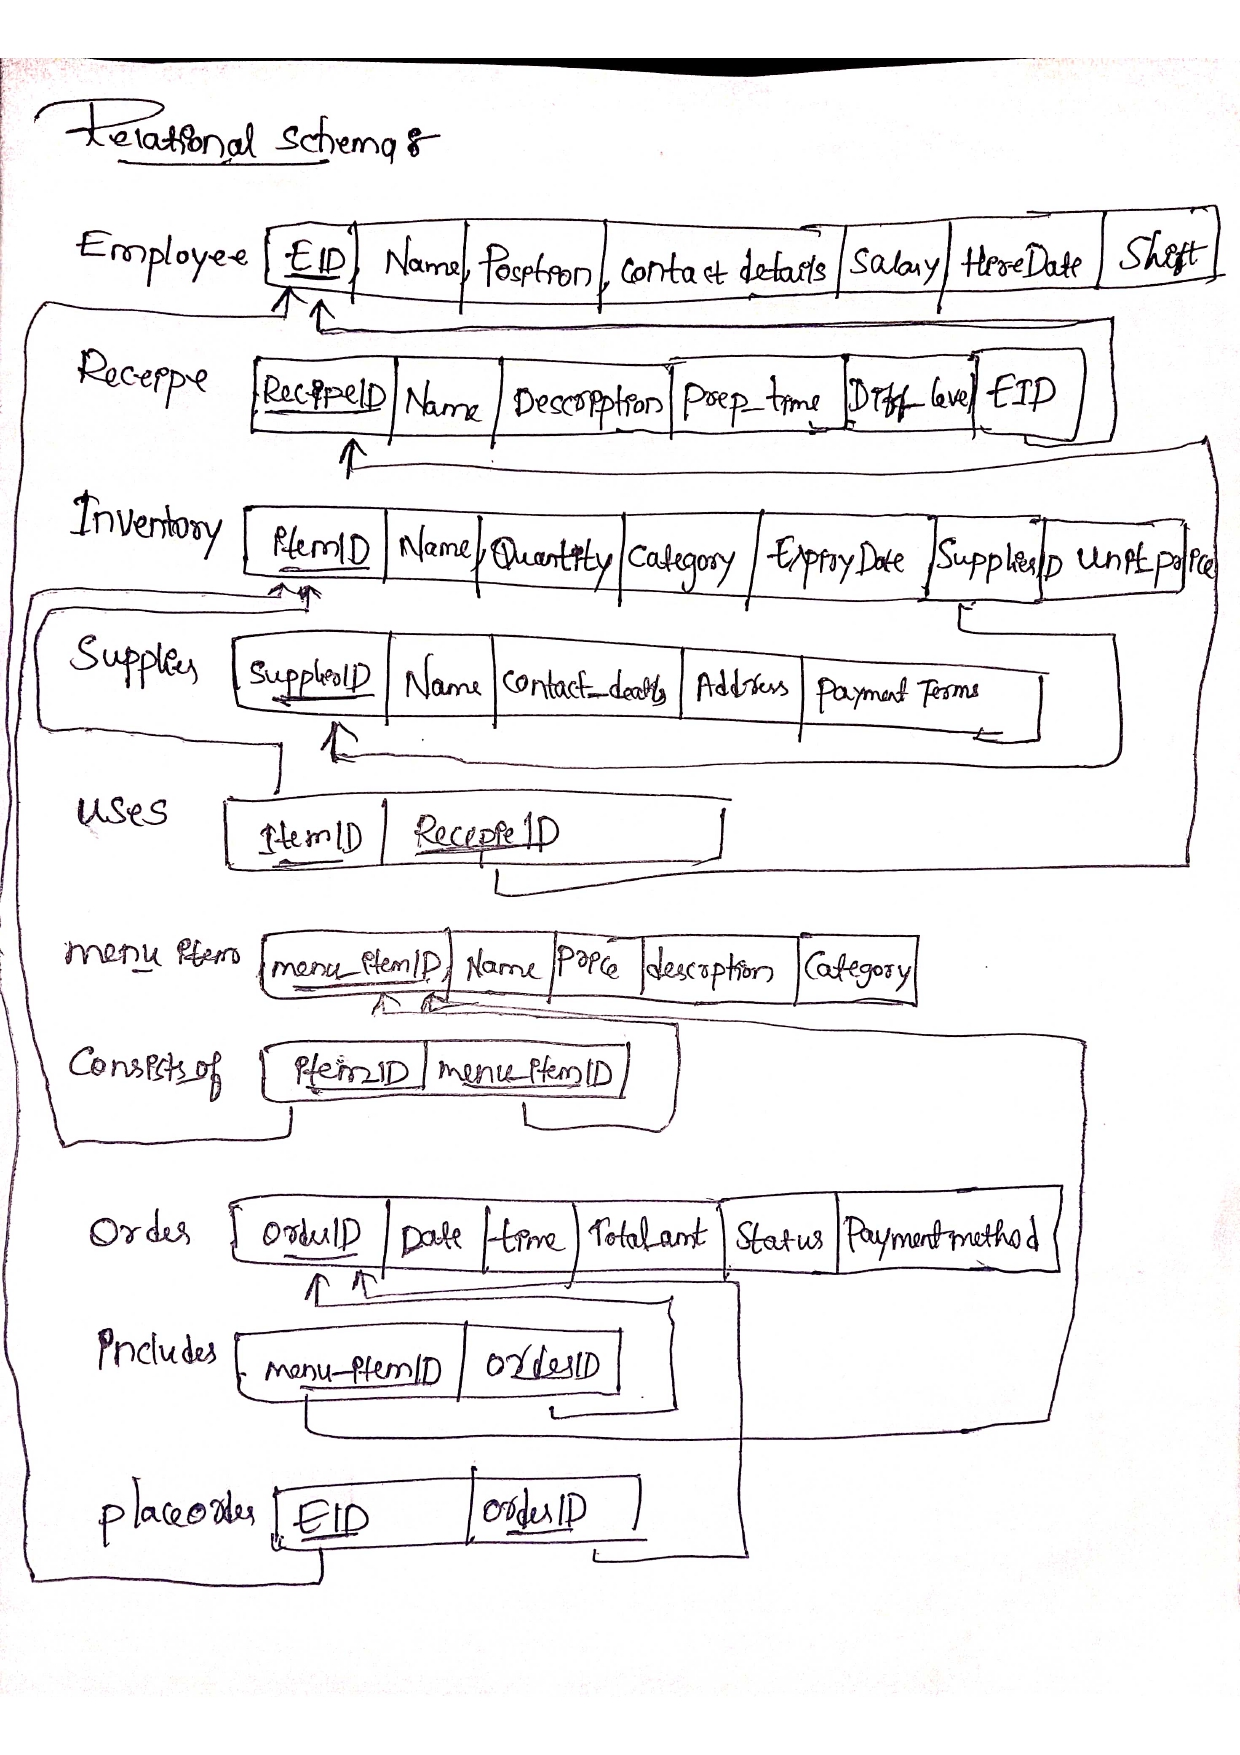 Relational Schema:
Employee EID, Name, Position, contact details Salary HireDate Shift
Receipe RecipeID Name Description Prep_time Diff_level EID
Inventory itemID Name, Quantity Category ExpiryDate SupplierID Unit price
Supplier SupplierID Name contact_details Address Payment Terms
uses ItemID ReceipeID
menu item menu_itemID, Name Price description Category
Consists_of itemID menu_itemID
Order OrderID Date time Total amt Status Payment method
includes menu-itemID orderID
placeorder EID orderID